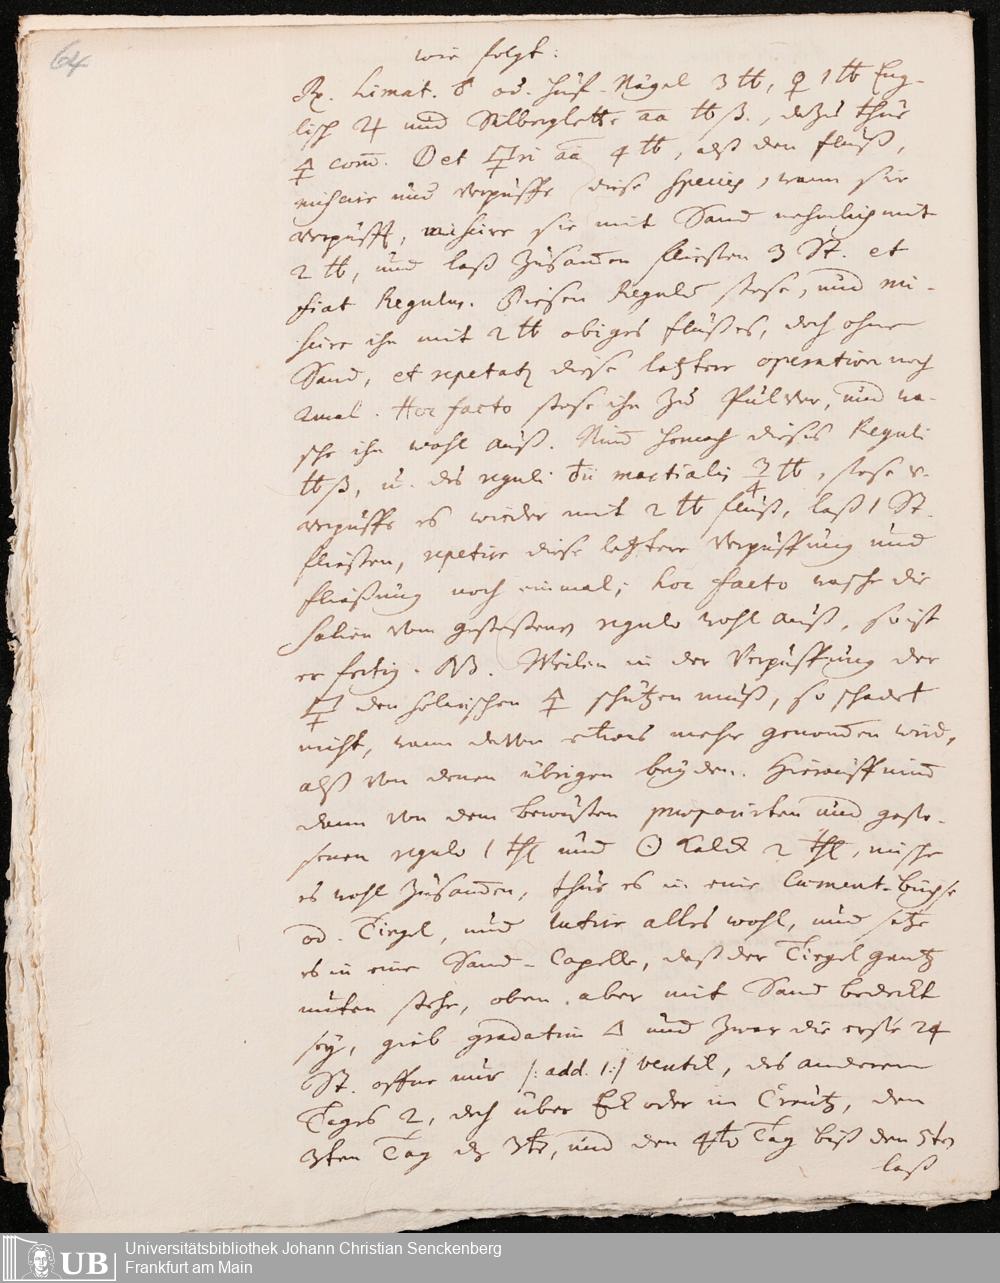 64
wie folgt:
Rx. Limat. ♂ od. Huf-Nägel 3 ℔, ♀ 1 ℔ Eng-
lisch ♃ und Silberglette aa ℔ß., dazu thue
🜍 com̄. et ri aā 4 ℔, alß den fluß,
miscire und verpuffe diese Species, wann sie
verpufft, miscire sie mit Sand nehmlich mit
2 ℔, und laß zusam̄en fliessen 3 St. et
fiat Regulus. Diesen Regulū stose, und mi-
scire ihn mit 2 ℔ obiges flußes, doch ohne
Sand, et repetatʒ diese letztere operation noch
2mal. Hoc facto stose ihn zu Pulver, und wa-
sche ihn wohl auß. Nim̄ hernach dieses Reguli
℔ß, u. des reguli ♁ii martialis ℔, stose u.
verpuffe es wieder mit 2 ℔ fluß, laß 1 St.
fließen, repetire diese letztere Verpuffung und
fließung noch einmal; hoc facto wasche die
salien vom gestossenen regulo wohl auß, so ist
er fertig. NB. Weilen in der Verpuffung der
den solarischen 🜍 schützen muß, so schadet
nicht, wann davon etwas mehr genom̄en wird,
alß von denen übrigen beyden. Hierauff nim̄
dann von dem bewusten praeparirten und gesto-
senen regulo 1 thl und ☉ Kalck 2 thl, mische
es wohl zusam̄en, thue es in eine Cement-büchse
od. Tiegel, und lutire alles wohl, und setze
es in eine Sand-Capelle, daß der Tiegel gantz
unten stehe, oben aber mit Sand bedeckt
sey, gieb gradatim △ und zwar die erste 24
St. offne nur /: add. 1:/ ventil, des anderen
Tages 2, doch über Eck oder im Creutz, den
3ten Tag dz 3te, und den 4te Tag biß den 5ten
laß
Universitätsbibliothek Johann Christian Senckenberg
Frankfurt am Main
UB